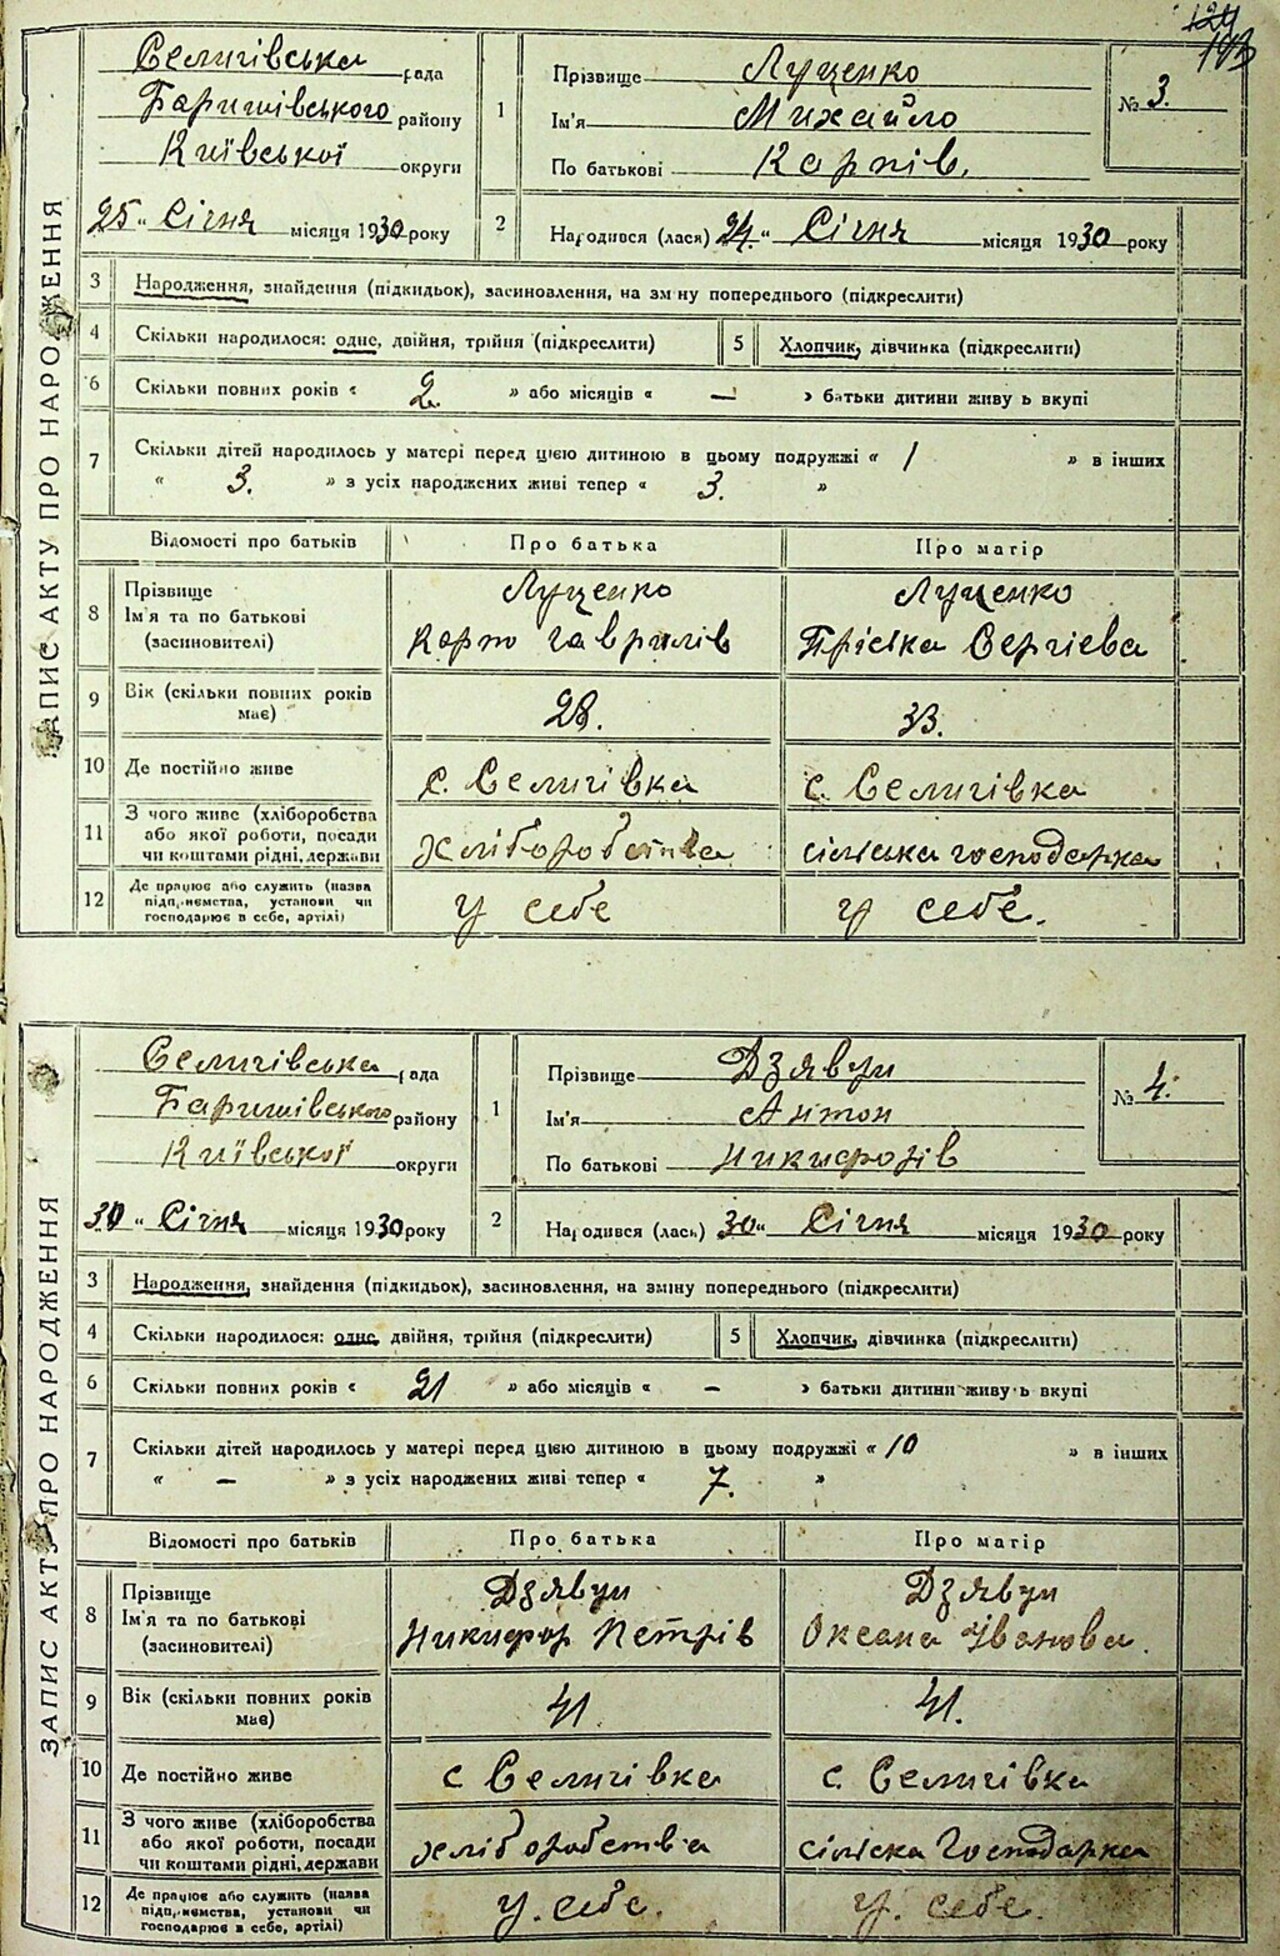 124
193
ЗАПИС АКТУ ПРО НАРОДЖЕННЯ
Селичівська рада
Баришівського району
Київської округи
25 „ Січня місяця 1930 року
1
Прізвище Луценко
Ім'я Михайло
По батькові Карпів.
№ 3.
2
Народився (лася) 24. „ Січня місяця 1930 року
3 Народження, знайдення (підкидьок), засиновлення, на зміну попереднього (підкреслити)
4 Скільки народилося: одне, двійня, трійня (підкреслити) 5 Хлопчик, дівчинка (підкреслити)
6 Скільки повних років « 2. » або місяців « — » батьки дитини живуть вкупі
7 Скільки дітей народилось у матері перед цією дитиною в цьому подружжі « 1 » в інших
« 3. » з усіх народжених живі тепер « 3. »
Відомості про батьків Про батька Про матір
8 Прізвище Ім'я та по батькові (засиновителі) Луценко Карпо Гаврилів Луценко Пріська Сергієва
9 Вік (скільки повних років має) 28. 33.
10 Де постійно живе с. Селичівка с. Селичівка
11 З чого живе (хліборобства або якої роботи, посади чи коштами рідні, держави хліборобства сільська господарка
12 Де працює або служить (назва підприємства, установи чи господарює в себе, артілі) у себе у себе.
ЗАПИС АКТУ ПРО НАРОДЖЕННЯ
Селичівська рада
Баришівського району
Київської округи
30 „ Січня місяця 1930 року
1
Прізвище Дзявун
Ім'я Антон
По батькові Никифорів
№ 4.
2
Народився (лась) 30 „ Січня місяця 1930 року
3 Народження, знайдення (підкидьок), засиновлення, на зміну попереднього (підкреслити)
4 Скільки народилося: одне, двійня, трійня (підкреслити) 5 Хлопчик, дівчинка (підкреслити)
6 Скільки повних років « 21 » або місяців « — » батьки дитини живуть вкупі
7 Скільки дітей народилось у матері перед цією дитиною в цьому подружжі « 10 » в інших
« — » з усіх народжених живі тепер « 7. »
Відомості про батьків Про батька Про матір
8 Прізвище Ім'я та по батькові (засиновителі) Дзявун Никифор Петрів Дзявун Оксана Іванова.
9 Вік (скільки повних років має) 41 41.
10 Де постійно живе с Селичівка с. Селичівка
11 З чого живе (хліборобства або якої роботи, посади чи коштами рідні, держави хліборобства сільська господарка
12 Де працює або служить (назва підприємства, установи чи господарює в себе, артілі) у. себе. у. себе.